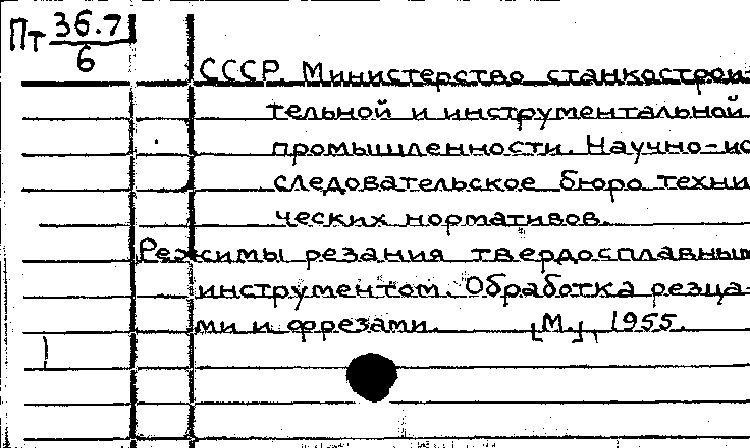 Пт 36.7
6
СССР. Министерство станкострои
тельной и инструментальной
промышленности. Научно-ис
следовательское бюро техни
ческих нормативов.
Режимы резания твердосплавным
инструментом. Обработка резца-
ми и фрезами. [М.], 1955.